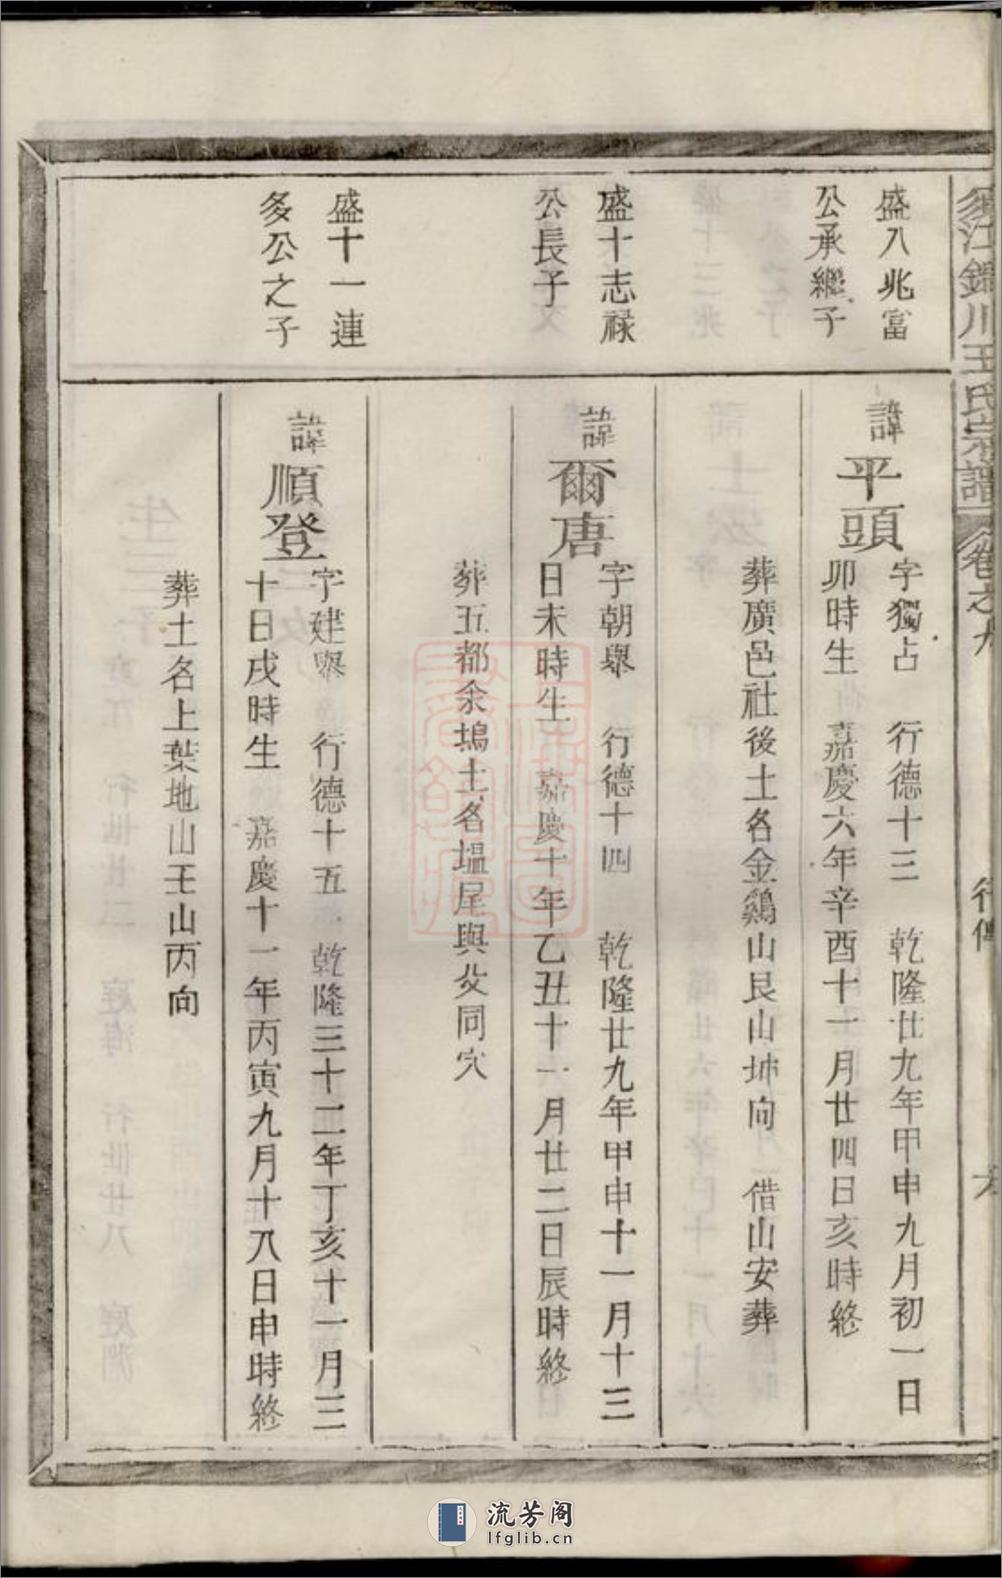 須江錦川王氏宗譜 卷之九 行傳 六
盛八兆富
公承繼子
諱平頭
字獨占 行德十三 乾隆廿九年甲申九月初一日
卯時生 嘉慶六年辛酉十一月廿四日亥時終
葬廣邑社後土名金鷄山艮山坤向 借山安葬
盛十志祿
公長子
諱爾唐
字朝舉 行德十四 乾隆廿九年甲申十一月十三
日未時生 嘉慶十年乙丑十一月廿二日辰時終
葬五都余塢土名塭尾與父同穴
盛十一連
多公之子
諱順登
字建舉 行德十五 乾隆三十二年丁亥十一月二
十日戌時生 嘉慶十一年丙寅九月十八日申時終
葬土名上葉地山壬山丙向
流芳阁
lfglib.cn